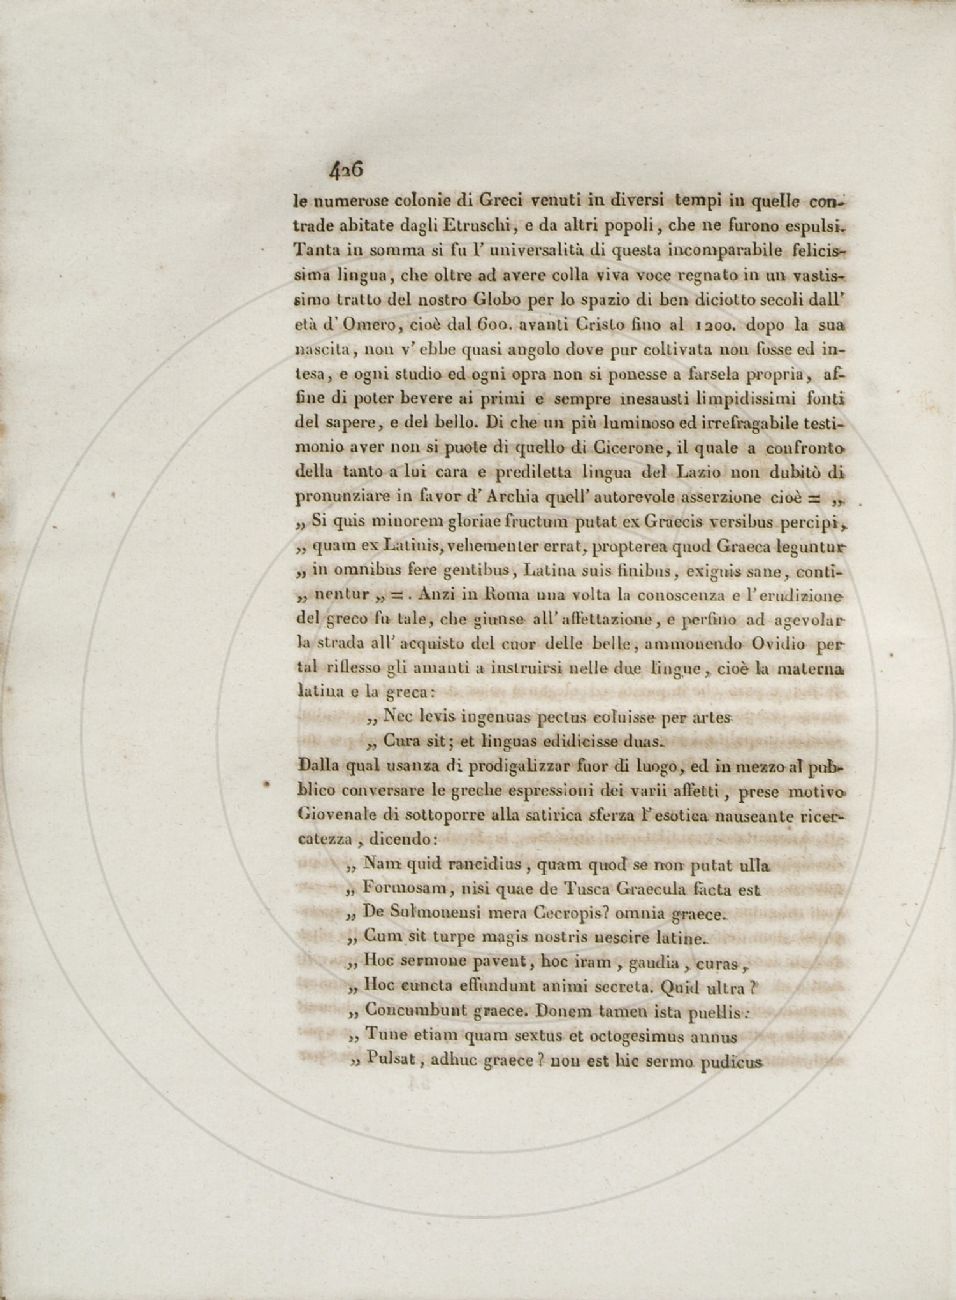 426
le numerose colonie di Greci venuti in diversi tempi in quelle con-
trade abitate dagli Etruschi, e da altri popoli, che ne furono espulsi.
Tanta in somma si fu l' universalità di questa incomparabile felicis-
sima lingua, che oltre ad avere colla viva voce regnato in un vastis-
simo tratto del nostro Globo per lo spazio di ben diciotto secoli dall'
età d' Omero, cioè dal 600. avanti Cristo fino al 1200. dopo la sua
nascita, non v' ebbe quasi angolo dove pur coltivata non fosse ed in-
tesa, e ogni studio ed ogni opra non si ponesse a farsela propria, af-
fine di poter bevere ai primi e sempre inesausti limpidissimi fonti
del sapere, e del bello. Di che un più luminoso ed irrefragabile testi-
monio aver non si puote di quello di Cicerone, il quale a confronto
della tanto a lui cara e prediletta lingua del Lazio non dubitò di
pronunziare in favor d' Archia quell' autorevole asserzione cioè = „
„ Si quis minorem gloriae fructum putat ex Graecis versibus percipi,
„ quam ex Latinis, vehementer errat, propterea quod Graeca leguntur
„ in omnibus fere gentibus, Latina suis finibus, exiguis sane, conti-
„ nentur „ = . Anzi in Roma una volta la conoscenza e l' erudizione
del greco fu tale, che giunse all' affettazione, e perfino ad agevolar
la strada all' acquisto del cuor delle belle, ammonendo Ovidio per
tal riflesso gli amanti a instruirsi nelle due lingue, cioè la materna
latina e la greca:
„ Nec levis ingenuas pectus coluisse per artes
„ Cura sit; et linguas edidicisse duas.
Dalla qual usanza di prodigalizzar fuor di luogo, ed in mezzo al pub-
blico conversare le greche espressioni dei varii affetti, prese motivo
Giovenale di sottoporre alla satirica sferza l' esotica nauseante ricer-
catezza, dicendo:
„ Nam quid rancidius, quam quod se non putat ulla
„ Formosam, nisi quae de Tusca Graecula facta est
„ De Sulmonensi mera Cecropis? omnia graece.
„ Cum sit turpe magis nostris nescire latine.
„ Hoc sermone pavent, hoc iram, gaudia, curas,
„ Hoc cuncta effundunt animi secreta. Quid ultra?
„ Concumbunt graece. Donem tamen ista puellis:
„ Tune etiam quam sextus et octogesimus annus
„ Pulsat, adhuc graece? non est hic sermo pudicus